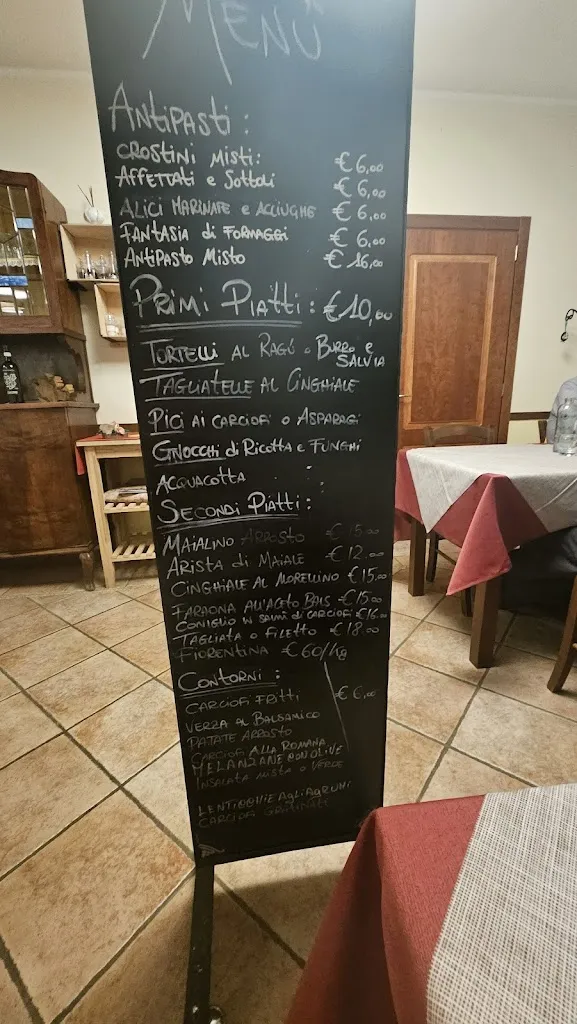 MENÙ
ANTIPASTI:
CROSTINI MISTI: € 6,00
AFFETTATI e SOTTOLI € 6,00
ALICI MARINATE e ACCIUGHE € 6,00
FANTASIA di FORMAGGI € 6,00
ANTIPASTO MISTO € 16,00
PRIMI PIATTI: €10,00
TORTELLI AL RAGÙ o BURRO e SALVIA
TAGLIATELLE AL CINGHIALE
PICI AI CARCIOFI O ASPARAGI
GNOCCHI di RICOTTA e FUNGHI
ACQUACOTTA
SECONDI PIATTI:
MAIALINO ARROSTO € 15,00
ARISTA DI MAIALE € 12,00
CINGHIALE AL MORELLINO € 15,00
FARAONA ALL'ACETO BALS €15,00
CONIGLIO IN SALMÌ DI CARCIOFI €16,00
TAGLIATA O FILETTO € 18,00
FIORENTINA € 60/Kg
CONTORNI:
CARCIOFI FRITTI € 6,00
VERZA AL BALSAMICO
PATATE ARROSTO
CARCIOFI ALLA ROMANA
MELANZANE CON OLIVE
INSALATA MISTA O VERDE
LENTICCHIE AGLI AGRUMI
CARCIOFI GRATINATI